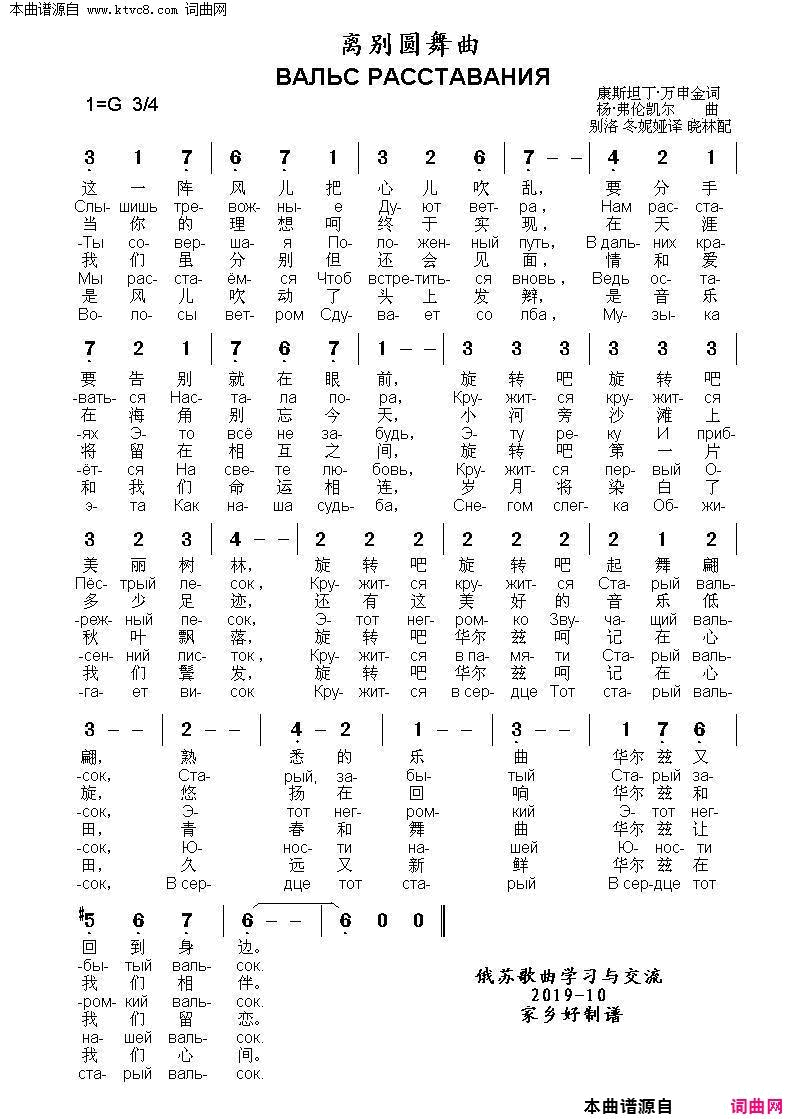 本曲谱源自 www.ktvc8.com 词曲网
离别圆舞曲
ВАЛЬС РАССТАВАНИЯ
1=G 3/4
康斯坦丁·万申金词
杨·弗伦凯尔 曲
别洛 冬妮娅译 晓林配
3 1 7 | 6 7 1 | 3 2 6 | 7 - - | 4 2 1 |
这 一 阵 风 儿 把 心 儿 吹 乱, 要 分 手
Слы- шишь тре- вож- ны- е Ду- ют вет- ра, Нам рас- ста-
当 你 的 理 想 呵 终 于 实 现, 在 天 涯
-Ты со- вер- ша- я По- ло- жен- ный путь, В даль- них кра-
我 们 虽 分 别 但 还 会 见 面, 情 和 爱
Мы рас- ста- ём- ся Чтоб встре- тить- ся вновь, Ведь ос- та-
是 风 儿 吹 动 了 头 上 发 辫, 是 音 乐
Во- ло- сы вет- ром Сду- ва- ет со лба, Му- зы- ка
7 2 1 | 7 6 7 | 1 - - | 3 3 3 | 3 3 3 |
要 告 别 就 在 眼 前, 旋 转 吧 旋 转 吧
-вать- ся Нас- та- ла по- ра, Кру- жит- ся кру- жит- ся
在 海 角 别 忘 今 天, 小 河 旁 沙 滩 上
-ях Э- то всё не за- будь, Э- ту ре- ку И приб-
将 留 在 相 互 之 间, 旋 转 吧 第 一 片
-ёт- ся На све- те лю- бовь, Кру- жит- ся пер- вый О-
和 我 们 命 运 相 连, 岁 月 将 染 白 了
э- та Как на- ша судь- ба, Сне- гом слег- ка Об- жи-
3 2 3 | 4 - - | 2 2 2 | 2 2 2 | 2 1 2 |
美 丽 树 林, 旋 转 吧 旋 转 吧 起 舞 翩
Пёс- трый ле- сок, Кру- жит- ся кру- жит- ся Ста- рый валь-
多 少 足 迹, 还 有 这 美 好 的 音 乐 低
-реж- ный пе- сок, Э- тот нег- ром- ко Зву- ча- щий валь-
秋 叶 飘 落, 旋 转 吧 华 尔 兹 呵 记 在 心
-сен- ний лис- ток, Кру- жит- ся в па- мя- ти Ста- рый валь-
我 们 鬓 发, 旋 转 吧 华 尔 兹 呵 记 在 心
-га- ет ви- сок Кру- жит- ся в сер- дце Тот ста- рый валь-
3 - - | 2 - - | 4 - 2 | 1 - - | 3 - - | 1 7 6 |
翩, 熟 悉 的 乐 曲 华 尔 兹 又
-сок, Ста- рый, за- бы- тый Ста- рый за-
旋, 悠 扬 在 回 响 华 尔 兹 和
-сок, Э- тот нег- ром- кий Э- тот нег-
田, 青 春 和 舞 曲 华 尔 兹 让
-сок, Ю- нос- ти на- шей Ю- нос- ти
田, 久 远 又 新 鲜 华 尔 兹 在
-сок, В сер- дце тот ста- рый В сер- дце тот
#5 6 7 | 6 - - | 6 0 0 ‖
回 到 身 边。
-бы- тый валь- сок.
我 们 相 伴。
-ром- кий валь- сок.
我 们 留 恋。
на- шей валь- сок.
我 们 心 间。
ста- рый валь- сок.
俄苏歌曲学习与交流
2019-10
家乡好制谱
本曲谱源自 词曲网